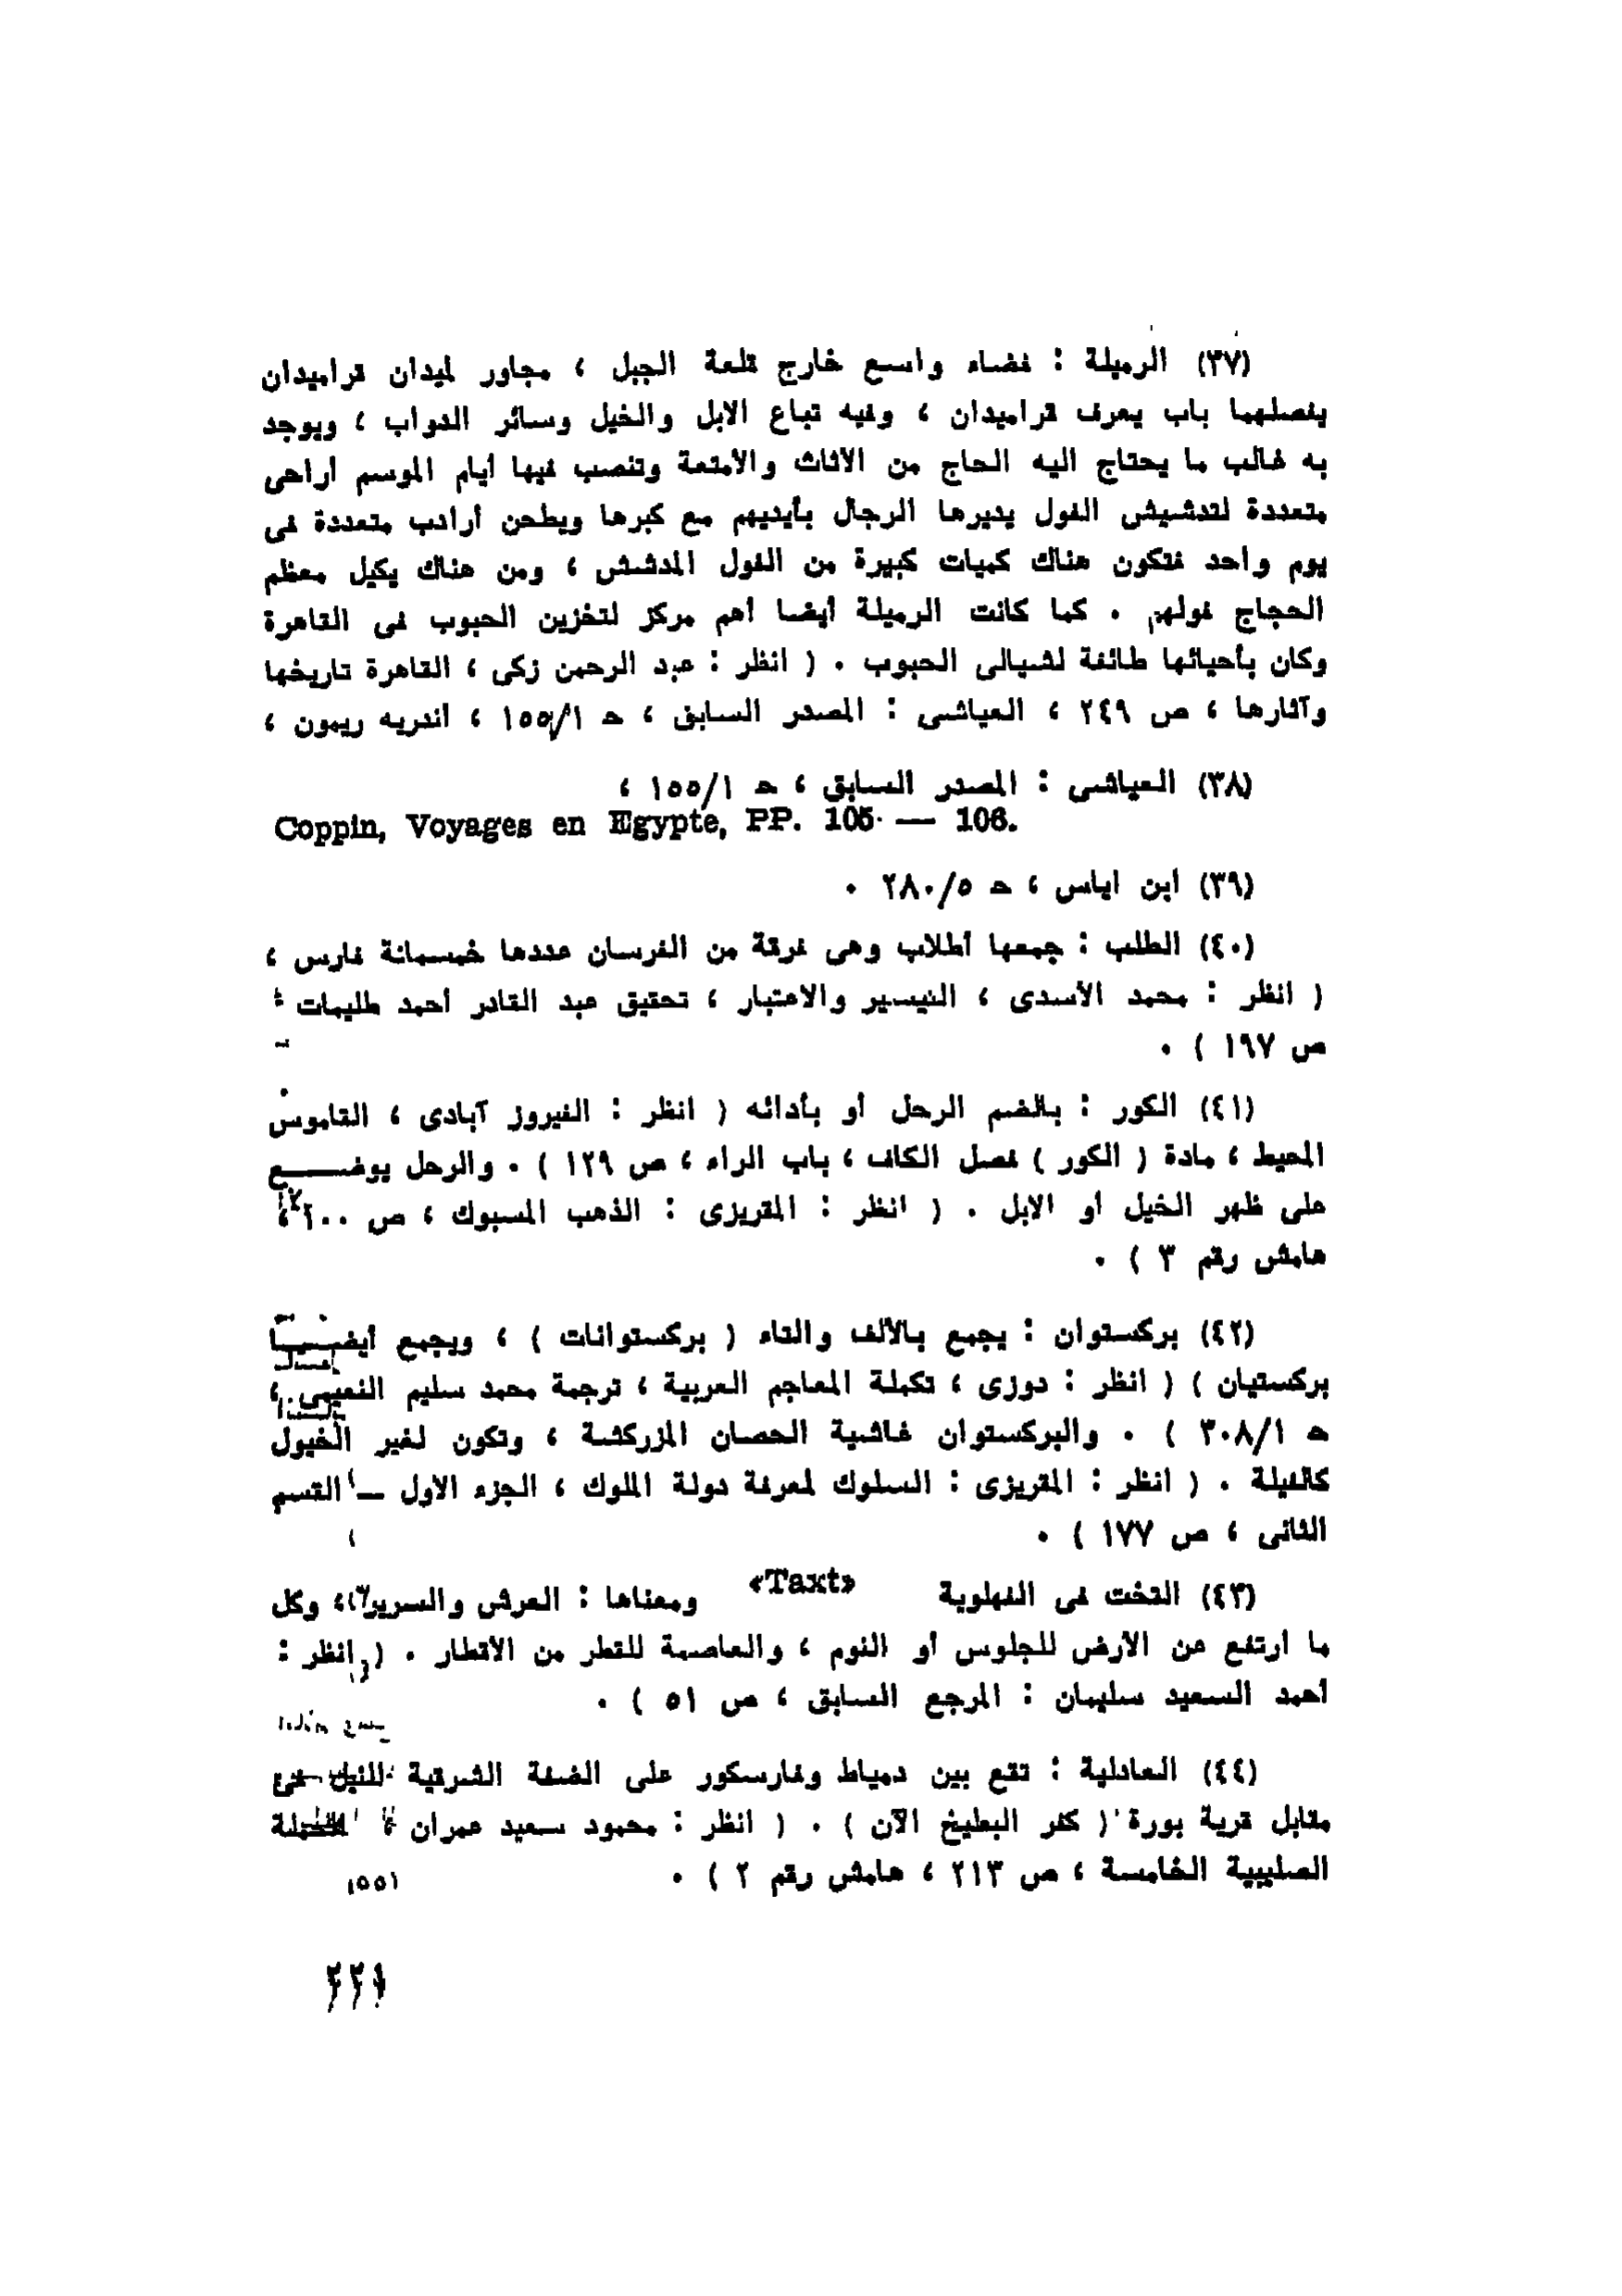 (٣٧) الرميلة : فضاء واسع خارج قلعة الجبل ، مجاور لميدان قراميدان
يفصلهما باب يعرف قراميدان ، وفيه تباع الابل والخيل وسائر الدواب ؛ ويوجد
به غالب ما يحتاج اليه الحاج من الأثاث والأمتعة وتنصب فيها أيام الموسم أراحى
متعددة لتدشيش الفول يديرها الرجال بأيديهم مع كبرها ويطحن أرادب متعددة فى
يوم واحد فتكون هناك كميات كبيرة من الفول المدشش ، ومن هناك يكيل معظم
الحجاج فولهم . كما كانت الرميلة أيضا أهم مركز لتخزين الحبوب فى القاهرة
وكان بأحيائها طائفة لشيالى الحبوب . ( انظر : عبد الرحمن زكى ، القاهرة تاريخها
وآثارها ، ص ٢٤٩ ، العياشى : المصدر السابق ، حـ ١٥٥/١ ، اندريه ريمون ،
(٣٨) العياشى : المصدر السابق ، حـ ١٥٥/١ ،
Coppin, Voyages en Egypte, PP. 105 — 106.
(٣٩) ابن اياس ، حـ ٢٨٠/٥ .
(٤٠) الطلب : جمعها أطلاب وهى فرقة من الفرسان عددها خمسمائة فارس ،
( انظر : محمد الأسدى ، التيسير والاعتبار ، تحقيق عبد القادر أحمد طليمات ،
ص ١٩٧ ) .
(٤١) الكور : بالضم الرحل أو بأدائه ( انظر : الفيروز آبادى ، القاموس
المحيط ، مادة ( الكور ) فصل الكاف ، باب الراء ، ص ١٢٩ ) . والرحل يوضـــع
على ظهر الخيل أو الابل . ( انظر : المقريزى : الذهب المسبوك ، ص
هامش رقم ٣ ) .
(٤٢) بركستوان : يجمع بالألف والتاء ( بركستوانات ) ، ويجمع أيضـــا
بركستيان ) ( انظر : دوزى ، تكملة المعاجم العربية ، ترجمة محمد سليم النعيمى ،
حـ ٣٠٨/١ ) . والبركستوان غاشية الحصان المزركشة ، وتكون لغير الخيول
كالفيلة . ( انظر : المقريزى : السلوك لمعرفة دولة الملوك ، الجزء الاول — القسم
الثانى ، ص ١٧٧ ) .
(٤٣) التخت فى الفهلوية «Taxt» ومعناها : العرش والسرير ، وكل
ما ارتفع عن الأرض للجلوس أو النوم ، والعاصمة للقطر من الأقطار . ( انظر :
أحمد السعيد سليمان : المرجع السابق ، ص ٥١ ) .
(٤٤) العادلية : تقع بين دمياط وفارسكور على الضفة الشرقية للنيل فى
مقابل قرية بورة ( كفر البطيخ الآن ) . ( انظر : محمود سعيد عمران ، الحملة
الصليبية الخامسة ، ص ٢١٣ ، هامش رقم ٢ ) .